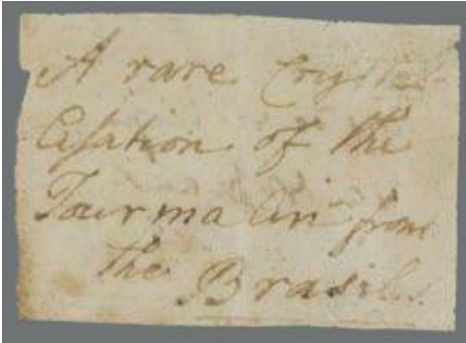 A rare Crystal-
lisation of the
Tourmalin from
the Brasils.